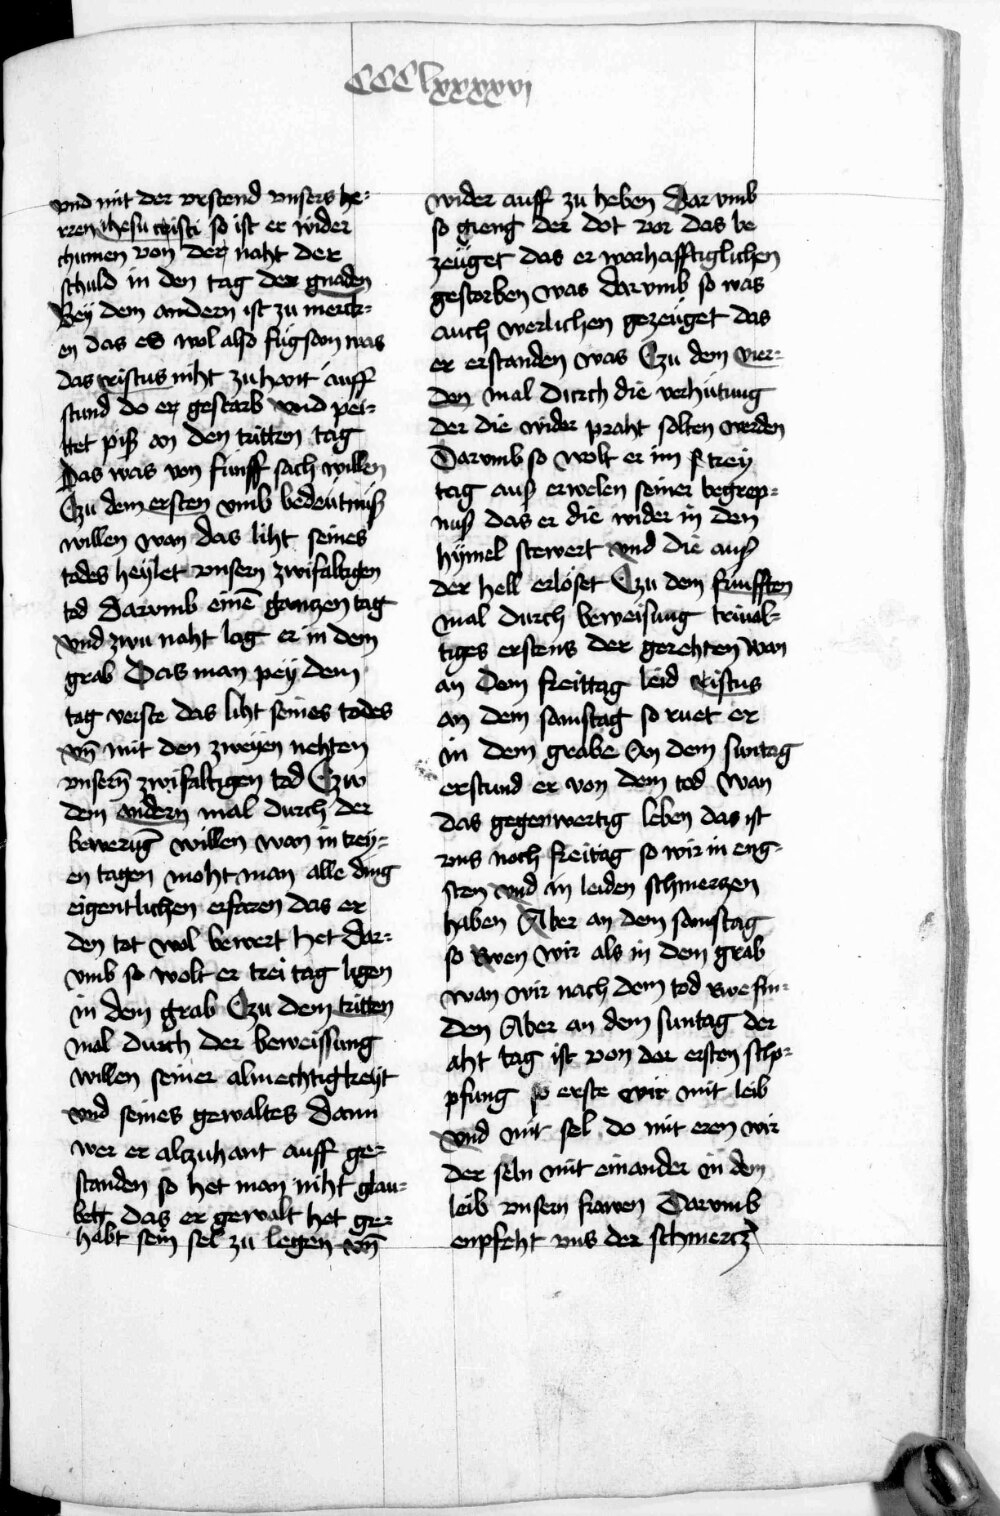 CCClxxxxvi
vnd mit der vrstend vnsers he-
rren ihesu cristi so ist er wider
chumen von der naht der
schuld in den tag der gnaden
Bey dem andern ist zu merck-
en das es wol also fugsam was
das cristus niht zu hant auff
stund do er gestarb vnd pei-
tet piß an den tritten tag
Das was von funff sach willen
Czu dem ersten vmb bedeutnuß
willen wan das liht seines
todes heylet vnsern zwifaltigen
tod Darvmb einē gantzen tag
vnd zwu naht lag er in dem
grab Das man pey dem
tag verste das liht seines todes
vn̄ mit den zweyen nehten
vnsern̄ zwifaltigen tod Czw
dem andern mal durch der
bewerūg willen wan in trey-
en tagen moht man alle ding
eigentlichen erfaren das er
den tot wol bewert het Dar-
vmb so wolt er trei tag ligen
in dem grab Czu dem tritten
mal durch der beweissung
willen seiner almechtigkeyt
vnd seines gewaltes Dann
wer er alczuhant auff ge-
standen so het man niht glau-
bett das er gewalt het ge-
habt sein sel zu legen vn̄
wider auff zu heben Dar vmb
so gieng der dot vor das be
zeuget das er warhafftiglichen
gestorben was Darvmb so was
auch werlichen gezeuget das
er erstanden was Czu dem vier-
den mal durch die verhutung
der die wider praht solten werden
Darvmb so wolt er im frey
tag auß erwelen seiner begrep-
nuß das er die wider in den
hymel stewert vnd die auß
der hell erloset Czu dem funfften
mal durch beweisung trival-
tiges erstens der gerehten Wan
an dem freittag leid cristus
an dem samstag so ruet er
in dem grabe An dem suntag
erstund er von dem tod Wan
das gegenwertig leben das ist
vns noch freitag so wir in eng-
sten vnd in leiden schmerczen
haben Aber an dem samstag
so rwen wir als in dem grab
wan wir nach dem tod rwe fin-
den Aber an dem suntag der
aht tag ist von der ersten scho-
pfung so erste wir mit leib
vnd mit sel do mit eren wir
der seln mit einander in dem
leib vnsern frawen Darvmb
enpfeht vns der schmercz